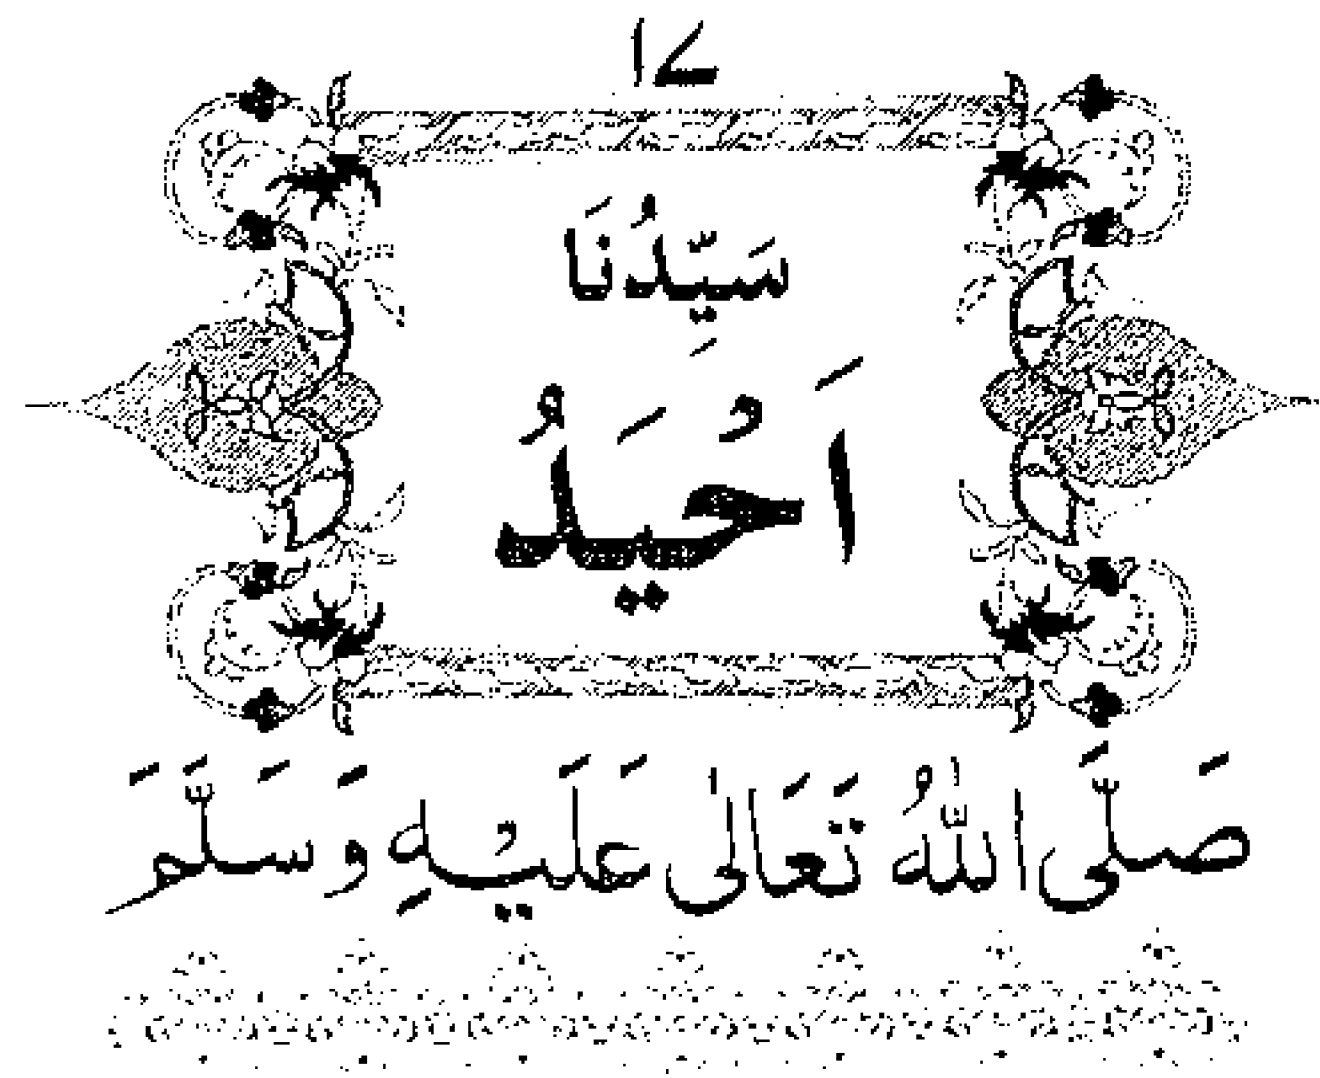 ۱۷
سَيِّدُنَا
اَحْيَدُ
صَلَّى اللّٰهُ تَعَالٰى عَلَيْهِ وَسَلَّمَ